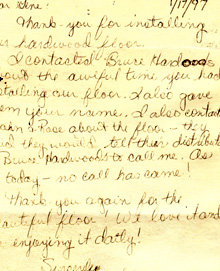 ar Gene: 1/17/97
Thank you for installing
s hardwood floor.
I contacted Bruce Hardoods
bout the awiful time you had
stalling our floor. I also gave
em your name. I also contact
ain & Rose about the floor - they
id they would tell their distribut
Bruce Hardwoods to call me. As
today - no call has came!
Thank you again for the
autiful floor! We love it and
enjoying it daily!
Sincerely